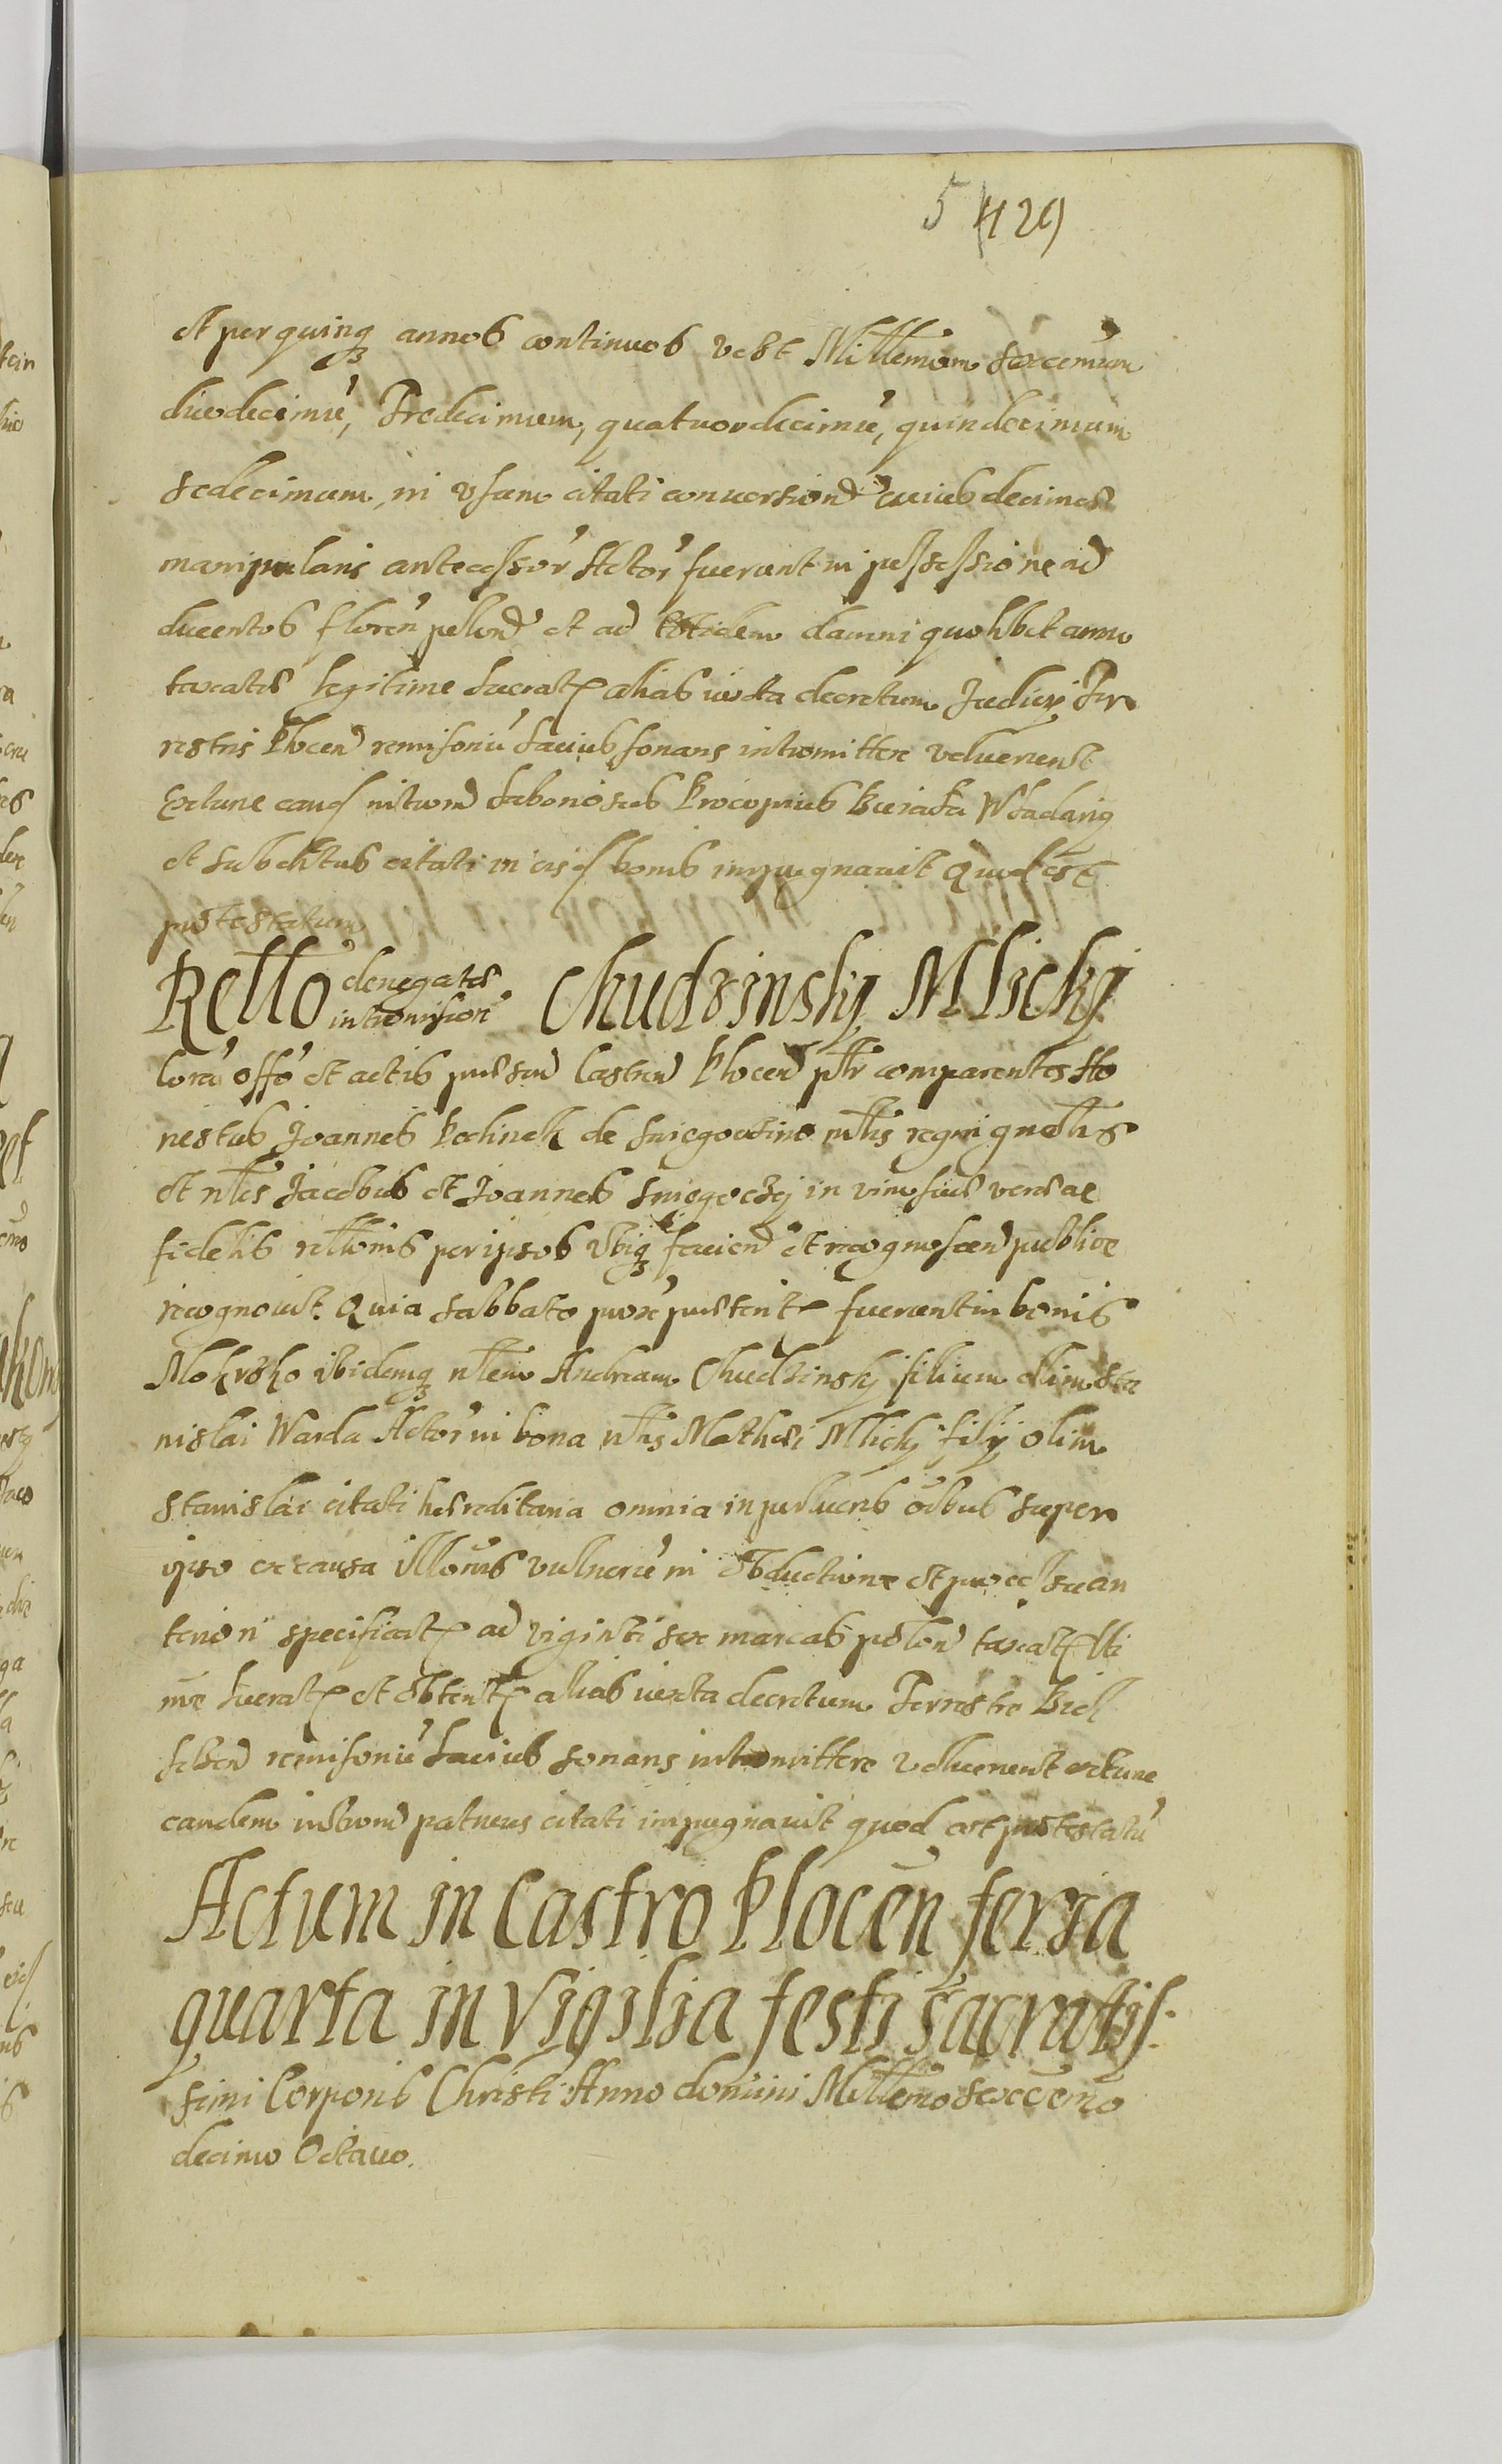 5 429
et per quinq annos continuos vest Millemum sexcemum
duodecimū, Tredecimum, quatuordecimū, quindecimum
sedecimum, in vsum citati conuersion cuius decimae
manipularis antecessor Actor fuerunt in possessione ad
ducentos floren polon et ad totidem damni quolibet anno
taxatae legitime lucrat alias iuxta decretum Judicij Ter
restris Plocen remissoriū latius sonans intromittere voluerunt
Extunc eand introm laboriosus Procopius Wladarig
et subditus citati in eisd bonis impugnauit Quod est
protestatum
Rello denegatae intromission Chudzinsky Mlicky
Corā offo et actis pntibus Castren Plocen plr comparentes Ho
nestus Joannes de mlis regni gnolis
et nles Jacobus et Joannes in vim suae verae ac
fidelis rellonis per ipsos vbiq facien et recognoscen publice
recognouit. Quia Sabbato prox praeterit fuerunt in bonis
Mokrsko ibidemq nlem Andream Chudzinsky filium olim Sta
nislai Warda Actor in bona nlis Mathei Mlicky filij olim
Stanislai citati haereditaria omnia in pro lucris oībus super
ipso ex causa illonis vulnerū in obductione et processu an
teriori specificat ad viginti sex marcas polon taxat lti
me lucrat et obtent alias iuxta decretum Terrestre Biel
scen remissoriū latius sonans intromittere voluerunt extunc
eandem introm patruus citati impugnauit quod est protestatū
Actum in Castro Plocēn feria
quarta in Vigilia festi Sacratis-
simi Corporis Christi Anno domini Millemo sexcemo
decimo Octauo.